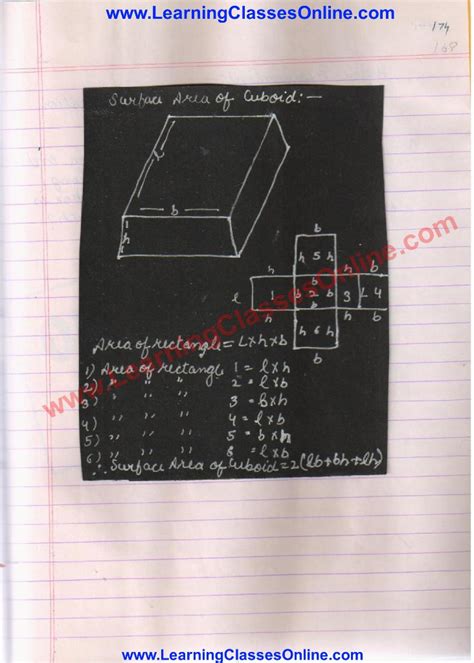 www.LearningClassesOnline.com
174
168
Surface Area of Cuboid:—
b
h
b
h 5 h
h b h b
l 1 b 2 b 3 L 4
h b h b
h 6 h
b
www.LearningClassesOnline.com
Area of rectangle = L×h×b
1) Area of rectangle 1 = l×h
2) " " " 2 = l×b
3) " " " 3 = l×h
4) " " " 4 = l×b
5) " " " 5 = b×h
6) " " " 6 = l×b
∴ Surface Area of Cuboid = 2(lb+bh+lh)
www.LearningClassesOnline.com